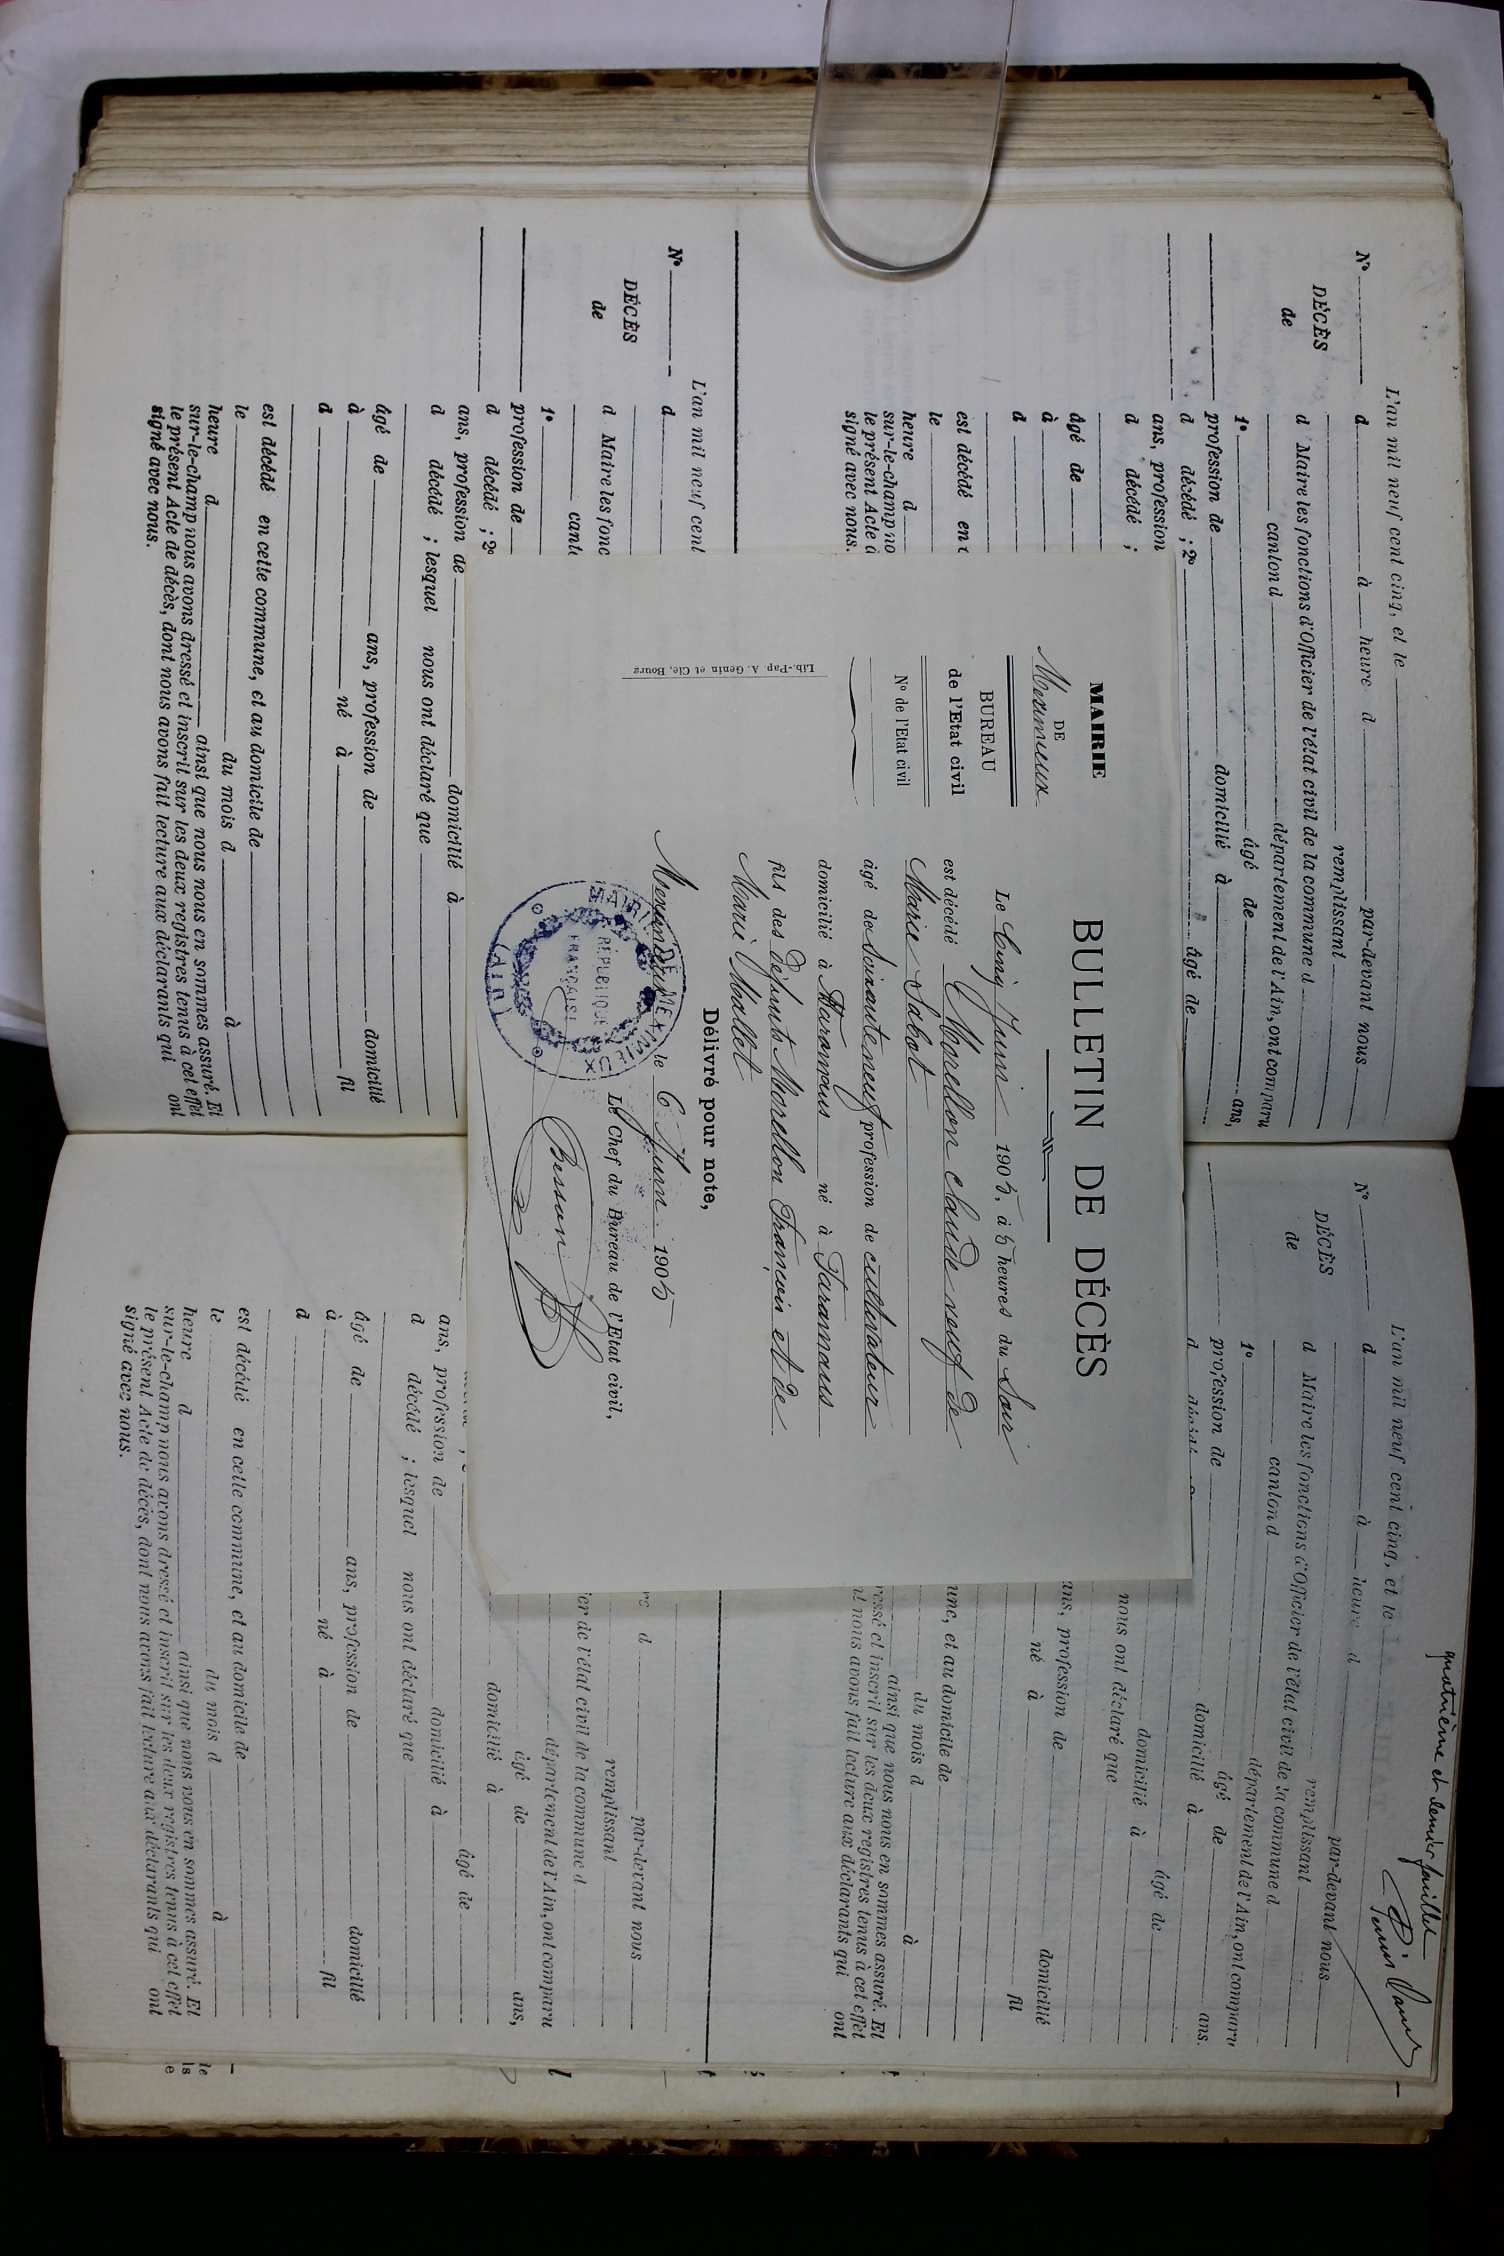 L'an mil neuf cent cinq, et le
N° d à heure d par-devant nous
DÉCÈS remplissant
de d Maire les fonctions d'Officier de l'état civil de la commune d
canton d département de l'Ain, ont comparu
1° âgé de ans,
profession de domicilié à
d décédé ; 2° âgé de
ans, profession
d décédé ;
âgé de
à
d
est décédé en c
le
heure d
sur-le-champ no
le présent Acte d
signé avec nous.
L'an mil neuf cent
N° d
DÉCÈS
de d Maire les fonc
cant
1°
profession de
d décédé ; 2°
ans, profession de domicilié à
d décédé ; lesquel nous ont déclaré que
âgé de ans, profession de domicilié
à né à fil
d
est décédé en cette commune, et au domicile de
le du mois d à
heure d ainsi que nous nous en sommes assuré. Et
sur-le-champ nous avons dressé et inscrit sur les deux registres tenus à cet effet
le présent Acte de décès, dont nous avons fait lecture aux déclarants qui ont
signé avec nous.
MAIRIE
DE
Meximieux
BUREAU
de l'Etat civil
N° de l'Etat civil
Lib.-Pap. A. Genin et Cie, Bourg
BULLETIN DE DÉCÈS
Le Cinq Juin 1905, à 5 heures du Soir
est décédé Morellon Claude veuf de
Marie Sabot
âgé de Soixante neuf profession de cultivateur
domicilié à Faramans né à Faramans
fils des défunts Morellon François et de
Marie Mallet
Délivré pour note,
Meximieux le 6 Juin 1905
Le Chef du Bureau de l'Etat civil,
Bessan
MAIRIE DE MEXIMIEUX
RÉPUBLIQUE
FRANÇAISE
(AIN)
quatrième et dernier feuillet
L'an mil neuf cent cinq, et le
N° d à heure d par-devant nous
DÉCÈS remplissant
de d Maire les fonctions d'Officier de l'état civil de la commune d
canton d département de l'Ain, ont comparu
1° âgé de ans.
profession de domicilié à
d âgé de
domicilié à
nous ont déclaré que
ans, profession de domicilié
né à fil
une, et au domicile de
du mois d à
ainsi que nous nous en sommes assuré. Et
ressé et inscrit sur les deux registres tenus à cet effet
nt nous avons fait lecture aux déclarants qui ont
re d par-devant nous
remplissant
ier de l'état civil de la commune d
département de l'Ain, ont comparu
âgé de ans,
domicilié à
âgé de
ans, profession de domicilié à
d décédé ; lesquel nous ont déclaré que
âgé de ans, profession de domicilié
à né à fil
d
est décédé en cette commune, et au domicile de
le du mois d à
heure d ainsi que nous nous en sommes assuré. Et
sur-le-champ nous avons dressé et inscrit sur les deux registres tenus à cet effet
le présent Acte de décès, dont nous avons fait lecture aux déclarants qui ont
signé avec nous.